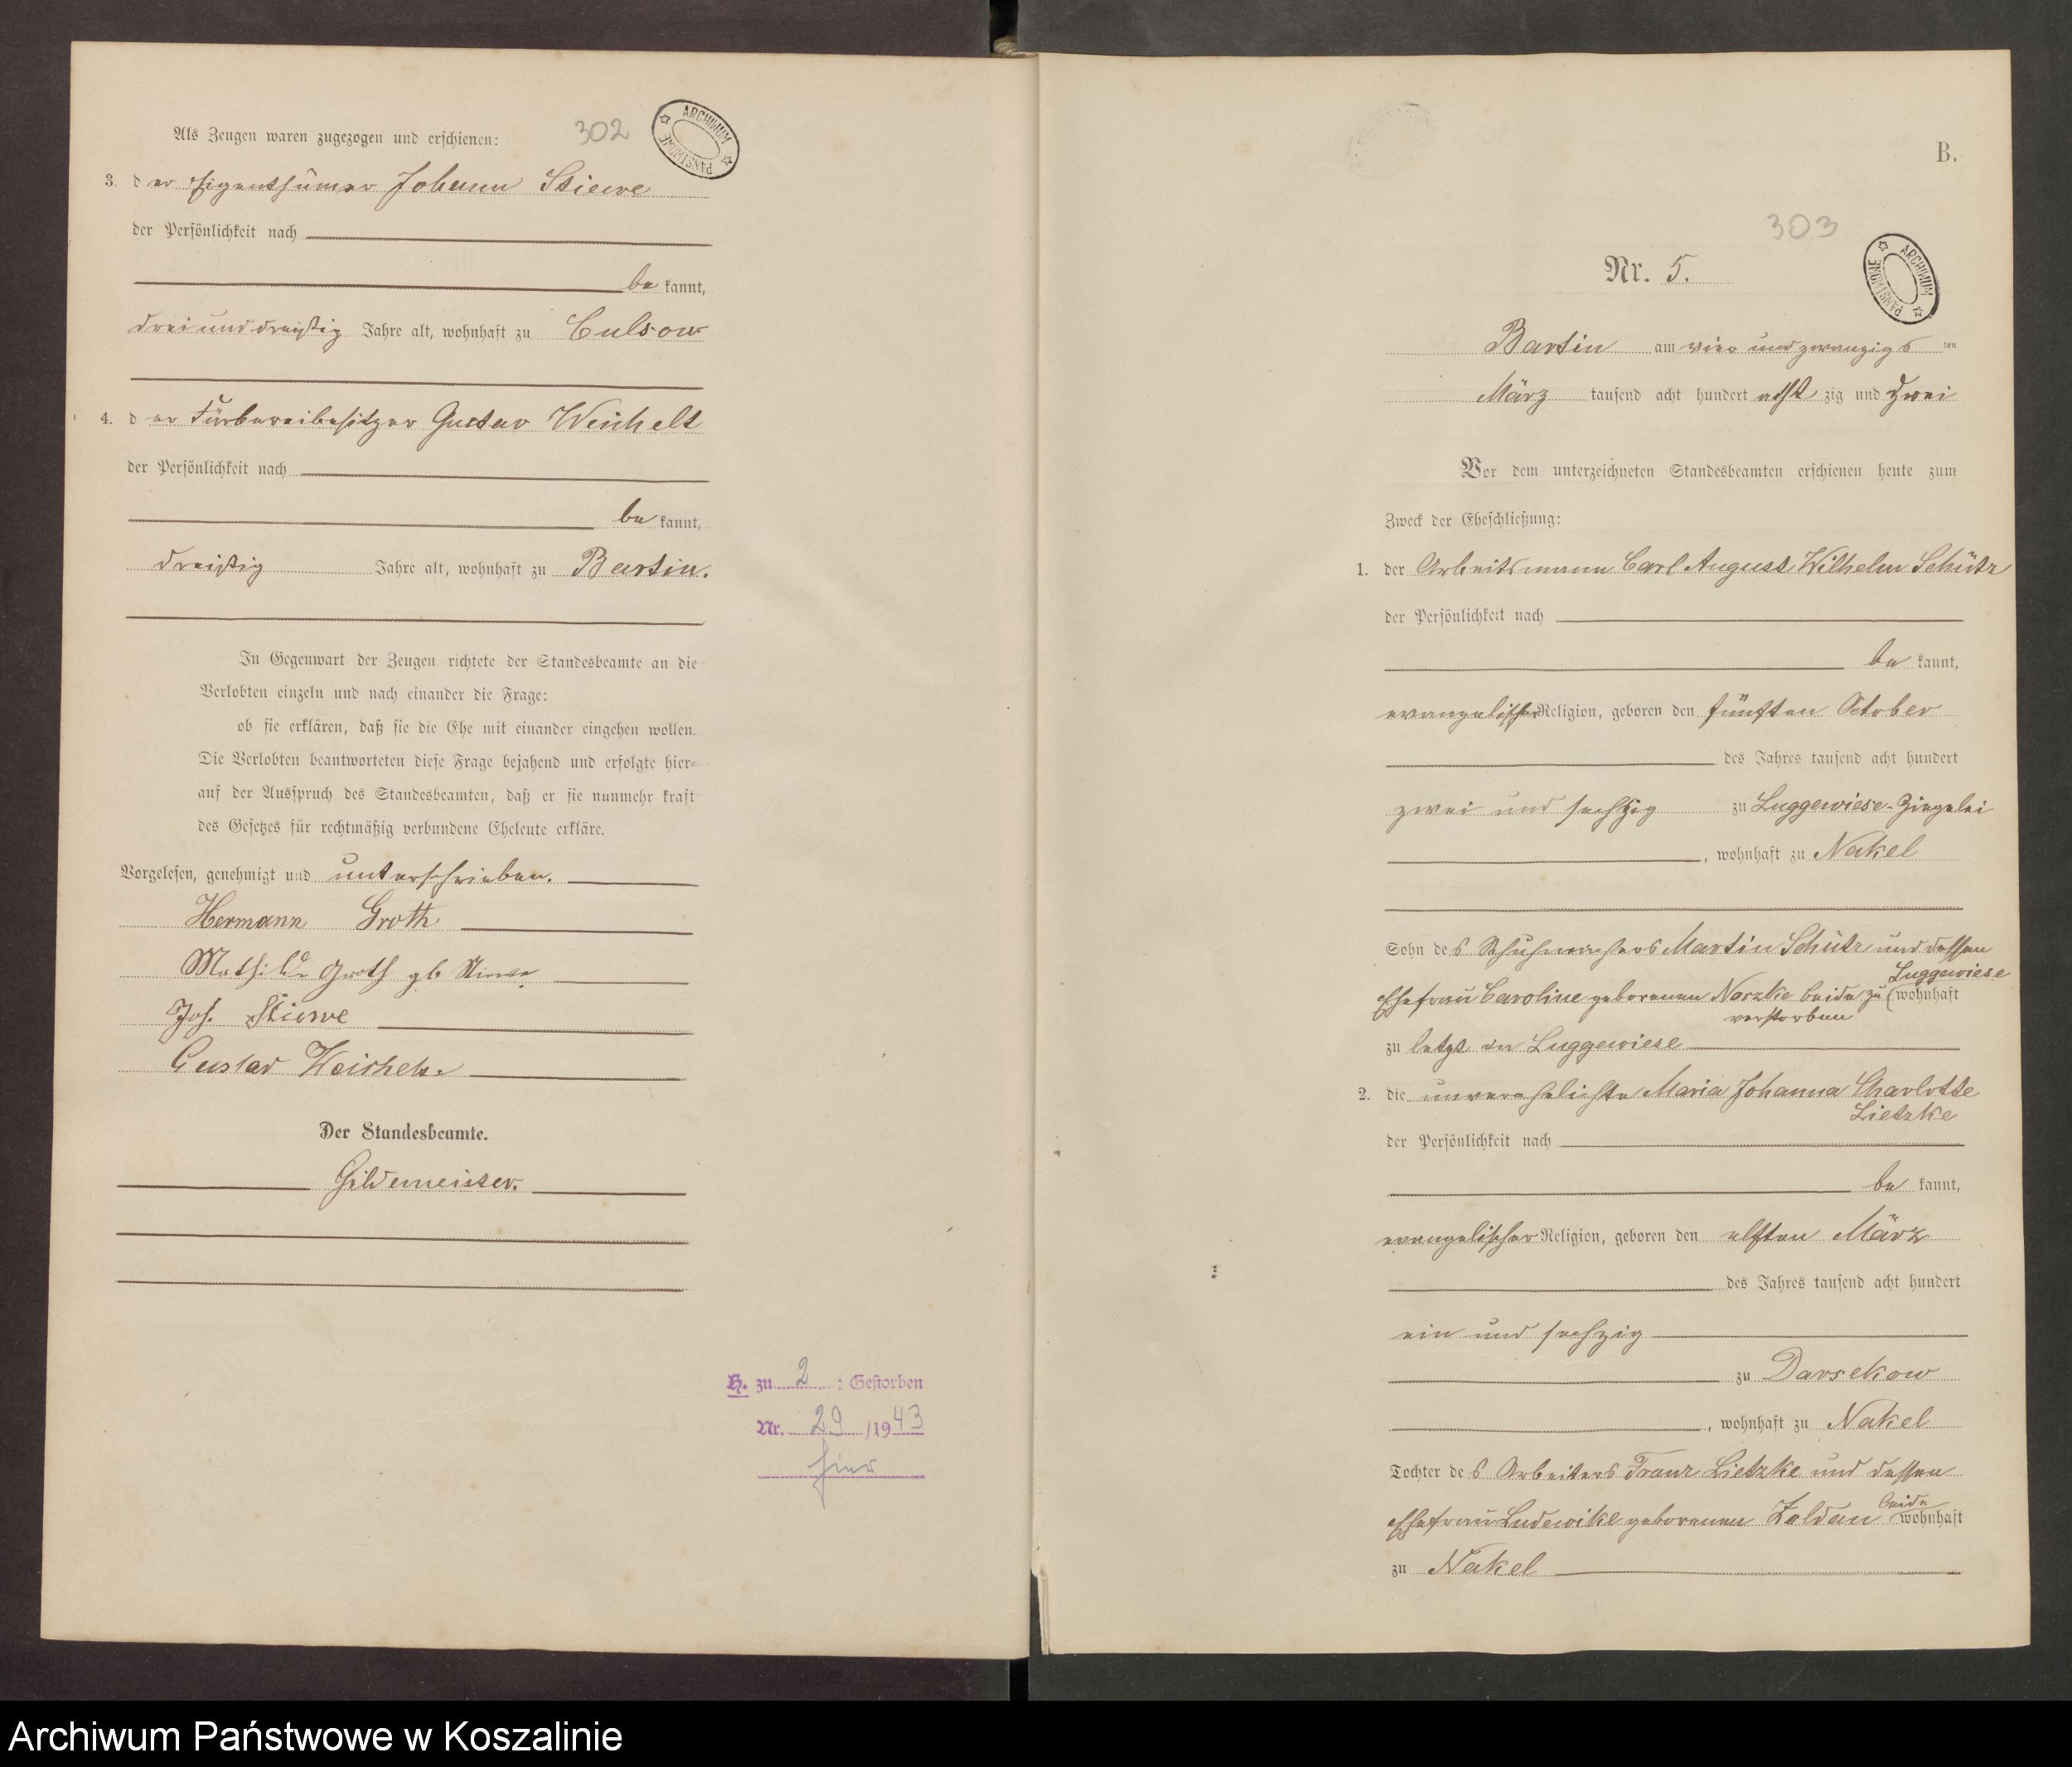 302
ARCHIWUM PAŃSTWOWE
Als Zeugen waren zugezogen und erschienen:
3. der Eigenthümer Johann Stiewe
der Persönlichkeit nach
bekannt,
dreiunddreißig Jahre alt, wohnhaft zu Culsow
4. der Färbereibesitzer Gustav Weichelt
der Persönlichkeit nach
bekannt,
dreißig Jahre alt, wohnhaft zu Bartin.
In Gegenwart der Zeugen richtete der Standesbeamte an die
Verlobten einzeln und nach einander die Frage:
ob sie erklären, daß sie die Ehe mit einander eingehen wollen.
Die Verlobten beantworteten diese Frage bejahend und erfolgte hier-
auf der Ausspruch des Standesbeamten, daß er sie nunmehr kraft
des Gesetzes für rechtmäßig verbundene Eheleute erkläre.
Vorgelesen, genehmigt und unterschrieben.
Hermann Groth
Mathilde Groth gb Stiewe
Joh. Stiewe
Gustav Weichelt
Der Standesbeamte.
Gildemeister.
H. zu 2 : Gestorben
Nr. 29 /1943
hier
B.
303
ARCHIWUM PAŃSTWOWE
Nr. 5.
Bartin am vier und zwanzigsten
März tausend acht hundert achtzig und zwei
Vor dem unterzeichneten Standesbeamten erschienen heute zum
Zweck der Eheschließung:
1. der Arbeitsmann Carl August Wilhelm Schütz
der Persönlichkeit nach
bekannt,
evangelischer Religion, geboren den fünften October
des Jahres tausend acht hundert
zwei und sechzig zu Luggewiese-Ziegelei
, wohnhaft zu Nakel
Sohn des Schuhmachers Martin Schütz und dessen
Luggewiese
Ehefrau Caroline geborenen Noszke beide zu wohnhaft
verstorben
zu letzt in Luggewiese
2. die unverehelichte Maria Johanna Charlotte
Lietzke
der Persönlichkeit nach
bekannt,
evangelischer Religion, geboren den elften März
des Jahres tausend acht hundert
ein und sechzig
zu Darsekow
, wohnhaft zu Nakel
Tochter des Arbeiters Franz Lietzke und dessen
beide
Ehefrau Ludewike geborenen Zoldan wohnhaft
zu Nakel
Archiwum Państwowe w Koszalinie